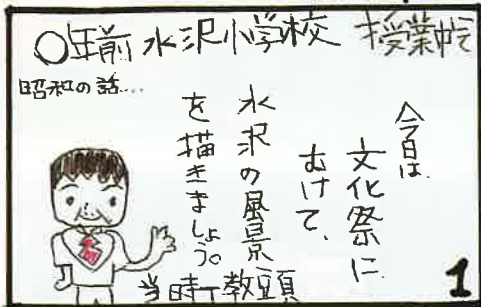 〇年前 水沢小学校 授業中
昭和の話…
今日は
文化祭に
むけて、
水沢の風景
を描きましょう。
当時丁教頭
1